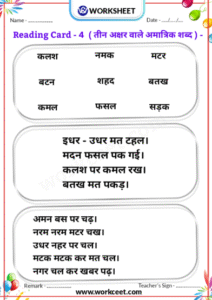 WORKSHEET
Name - Date - / /
Reading Card - 4 ( तीन अक्षर वाले अमात्रिक शब्द ) -
कलश नमक मटर
बटन शहद बतख
कमल फसल सड़क
इधर - उधर मत टहल।
मदन फसल पक गई।
कलश पर कमल रख।
बतख मत पकड़।
अमन बस पर चढ़।
नरम नरम मटर चख।
उधर नहर पर चल।
मटक मटक कर मत चल।
नगर चल कर खबर पढ़।
Remark - Teacher's Sign -
www.workceet.com